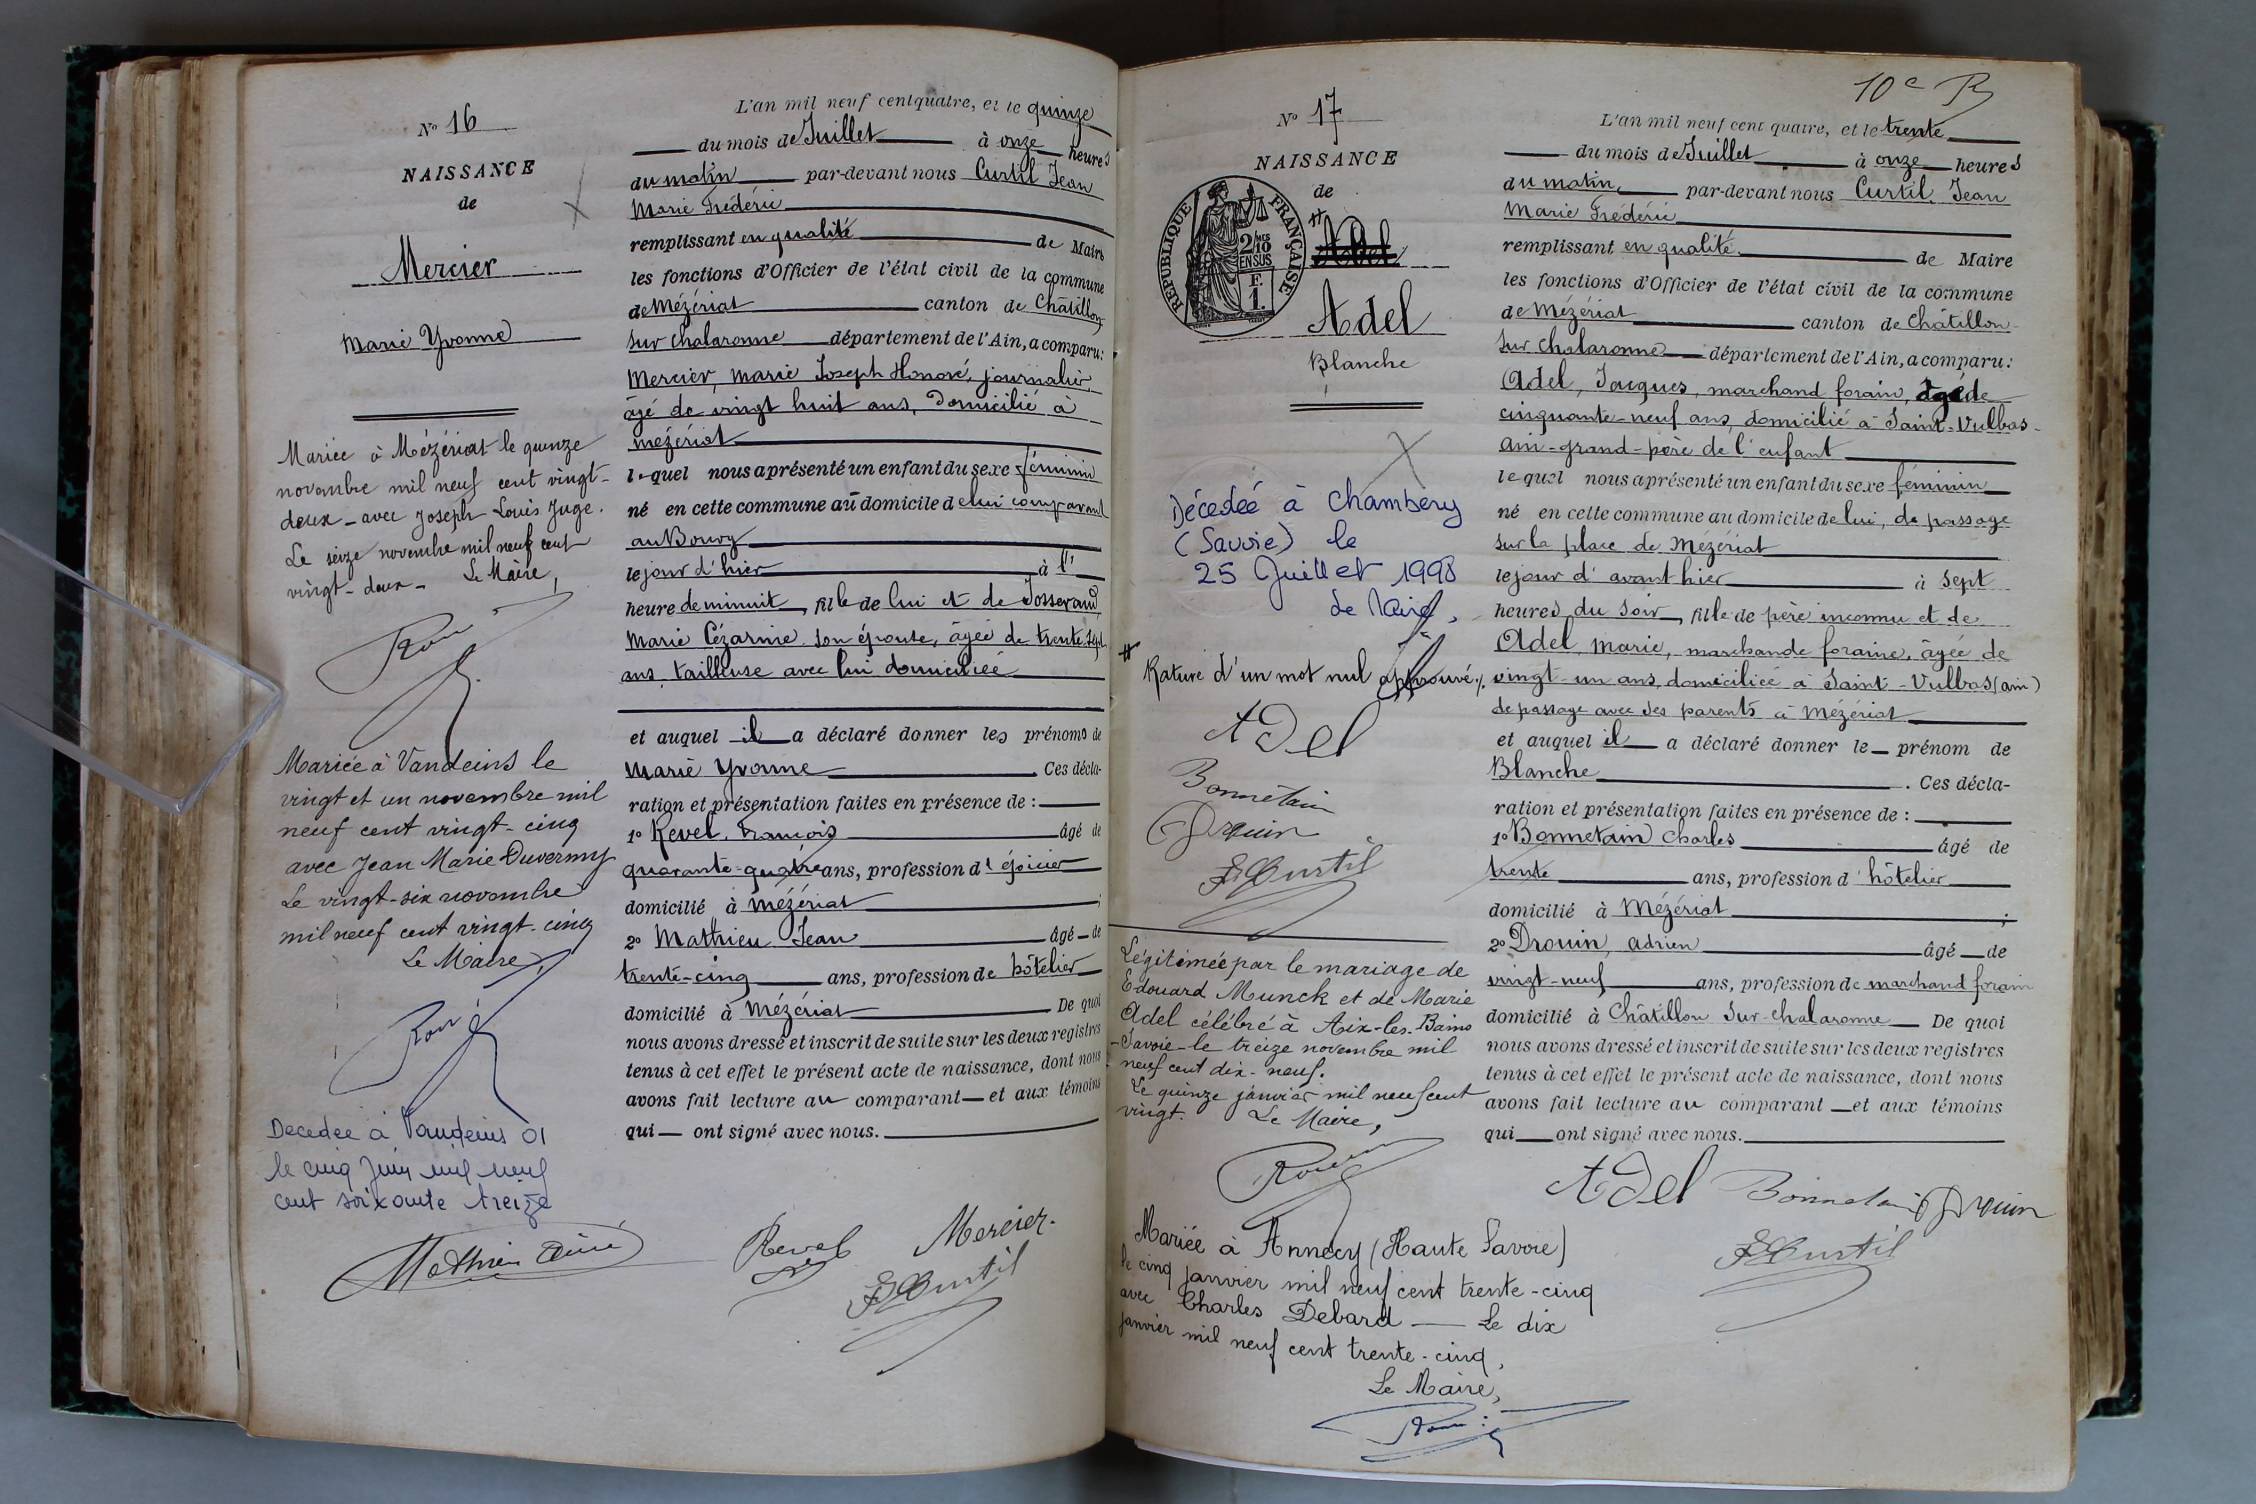 N° 16
NAISSANCE
de
Mercier
Marie Yvonne
Mariée à Mézériat le quinze
novembre mil neuf cent vingt-
deux - avec Joseph Louis Juge.
Le seize novembre mil neuf cent
vingt-deux - Le Maire,
Mariée à Vandeins le
vingt et un novembre mil
neuf cent vingt-cinq
avec Jean Marie Duvernay
Le vingt-six novembre
mil neuf cent vingt-cinq
Le Maire,
Decedee à Vandeins 01
le cinq Juin mil neuf
cent soixante treize
L'an mil neuf cent quatre, et le quinze
du mois de Juillet à onze heures
du matin par-devant nous Curtil Jean
Marie Frédéric
remplissant en qualité de Maire
les fonctions d'Officier de l'état civil de la commune
de Mézériat canton de Châtillon
sur Chalaronne département de l'Ain, a comparu:
Mercier, Marie Joseph Honoré, journalier,
âgé de vingt huit ans, domicilié à
Mézériat
lequel nous a présenté un enfant du sexe féminin
né en cette commune au domicile de lui comparant
au Bourg
le jour d'hier à l'
heure de minuit, fille de lui et de Josserand,
Marie Cézarine son épouse, âgée de trente sept
ans, tailleuse avec lui domiciliée
et auquel il a déclaré donner les prénoms de
Marie Yvonne. Ces décla-
ration et présentation faites en présence de :
1° Revel, François âgé de
quarante-quatre ans, profession d'épicier
domicilié à Mézériat ;
2° Mathieu Jean âgé de
trente-cinq ans, profession de hôtelier
domicilié à Mézériat De quoi
nous avons dressé et inscrit de suite sur les deux registres
tenus à cet effet le présent acte de naissance, dont nous
avons fait lecture au comparant et aux témoins
qui ont signé avec nous.
Revel Mercier.
Curtil
10e
N° 17
NAISSANCE
de
RÉPUBLIQUE FRANÇAISE
2/10 MES
EN SUS
F.
1.
Adel
Adel
Blanche
Décédée à Chambery
(Savoie) le
25 Juillet 1998
Le Maire,
Rature d'un mot nul approuvé
Adel
Bonnetain
Drouin
Curtil
Légitimée par le mariage de
Edouard Munck et de Marie
Adel célébré à Aix-les-Bains
-Savoie- le treize novembre mil
neuf cent dix-neuf.
Le quinze janvier mil neuf cent
vingt. Le Maire,
Mariée à Annecy (Haute Savoie)
le cinq janvier mil neuf cent trente-cinq
avec Charles Debard — Le dix
janvier mil neuf cent trente-cinq,
Le Maire,
L'an mil neuf cent quatre, et le trente
du mois de Juillet à onze heures
du matin, par-devant nous Curtil Jean
Marie Frédéric
remplissant en qualité de Maire
les fonctions d'Officier de l'état civil de la commune
de Mézériat canton de Châtillon
sur Chalaronne département de l'Ain, a comparu:
Adel, Jacques, marchand forain, âgé de
cinquante-neuf ans, domicilié à Saint-Vulbas-
ain-grand-père de l'enfant
lequel nous a présenté un enfant du sexe féminin
né en cette commune au domicile de lui, de passage
sur la place de Mézériat
le jour d'avant hier à sept
heures du soir, fille de père inconnu et de
Adel Marie, marchande foraine, âgée de
vingt-un ans, domiciliée à Saint-Vulbas (ain)
de passage avec ses parents à Mézériat
et auquel il a déclaré donner le prénom de
Blanche. Ces décla-
ration et présentation faites en présence de :
1° Bonnetain Charles âgé de
trente ans, profession d'hôtelier
domicilié à Mézériat ;
2° Drouin, Adrien âgé de
vingt-neuf ans, profession de marchand forain
domicilié à Châtillon sur-chalaronne De quoi
nous avons dressé et inscrit de suite sur les deux registres
tenus à cet effet le présent acte de naissance, dont nous
avons fait lecture au comparant et aux témoins
qui ont signé avec nous.
Adel Bonnetain Drouin
Curtil